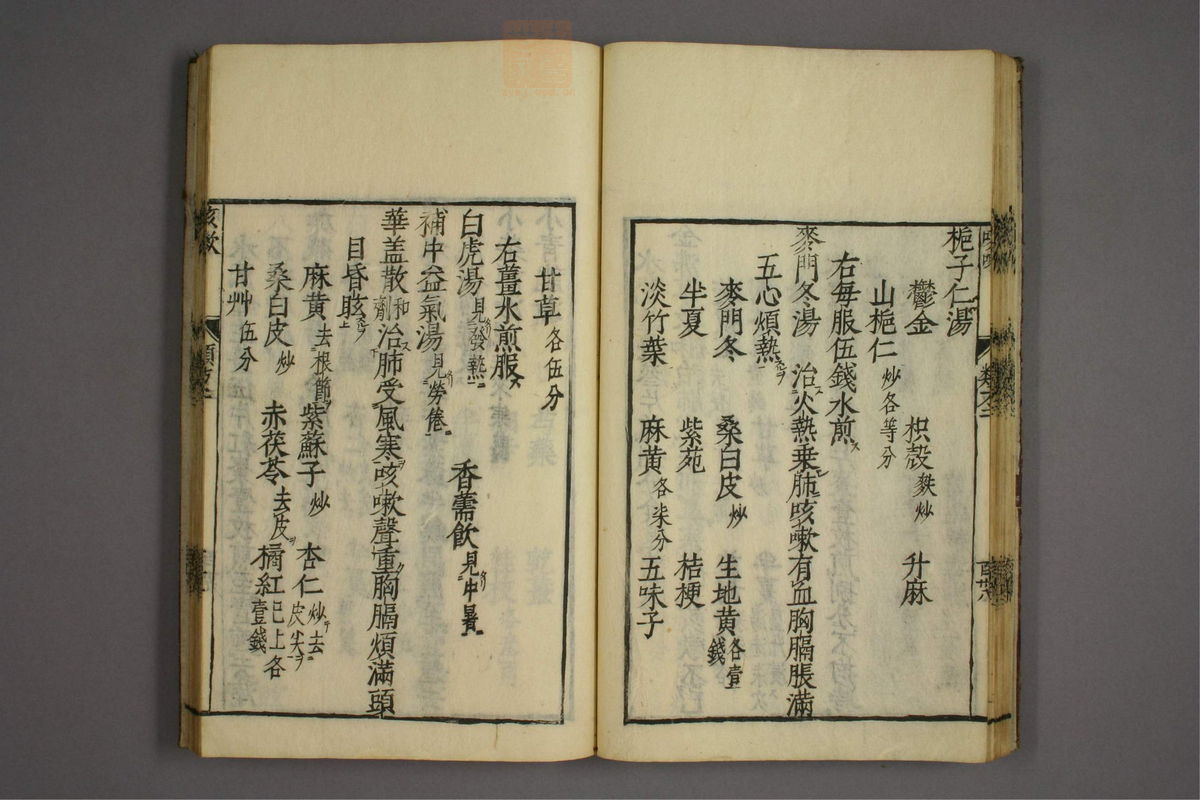 梔子仁湯
鬱金 枳殼麩炒 升麻
山梔仁炒各等分
右每服伍錢水煎ス
麥門冬湯 治ス火熱乗レ肺ニ咳嗽有血胸膈脹滿
五心煩熱
麥門冬 桑白皮炒 生地黃各壹錢
半夏 紫苑 桔梗
淡竹葉 麻黃各柒分 五味子
甘草各伍分
右薑水煎服ス
白虎湯見發熱 香薷飲見中暑
補中益氣湯見勞倦
華盖散和劑 治ス下肺受ケ風寒ヲ咳嗽聲重ク胸膈煩滿頭
目昏眩ヲ上
麻黃去根節 紫蘇子炒 杏仁炒去皮尖
桑白皮炒 赤茯苓去皮 橘紅已上各壹錢
甘艸伍分
咳嗽